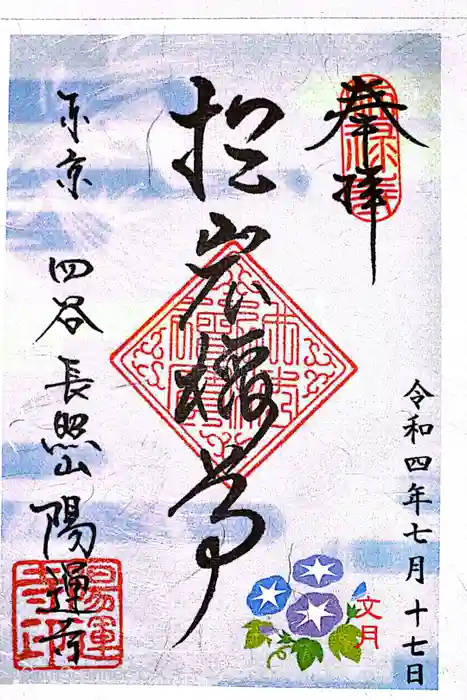 奉拝
於岩稲荷
東京
四谷長照山陽運寺
令和四年七月十七日
文月
陽運寺印